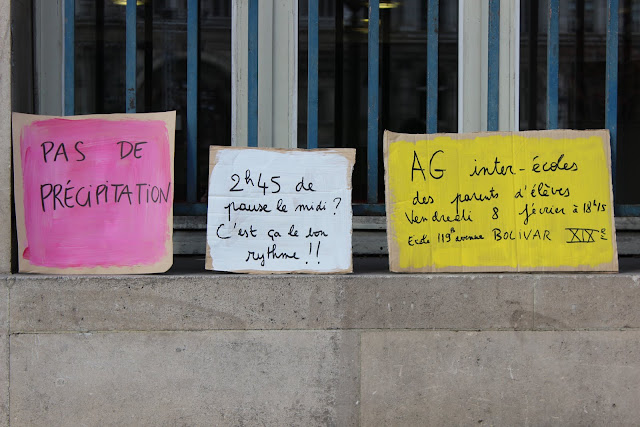 PAS DE
PRÉCIPITATION
2h45 de
pause le midi ?
C'est ça le bon
rythme !!
AG inter-écoles
des parents d'élèves
Vendredi 8 février à 18h15
Ecole 119 avenue BOLIVAR XIXe